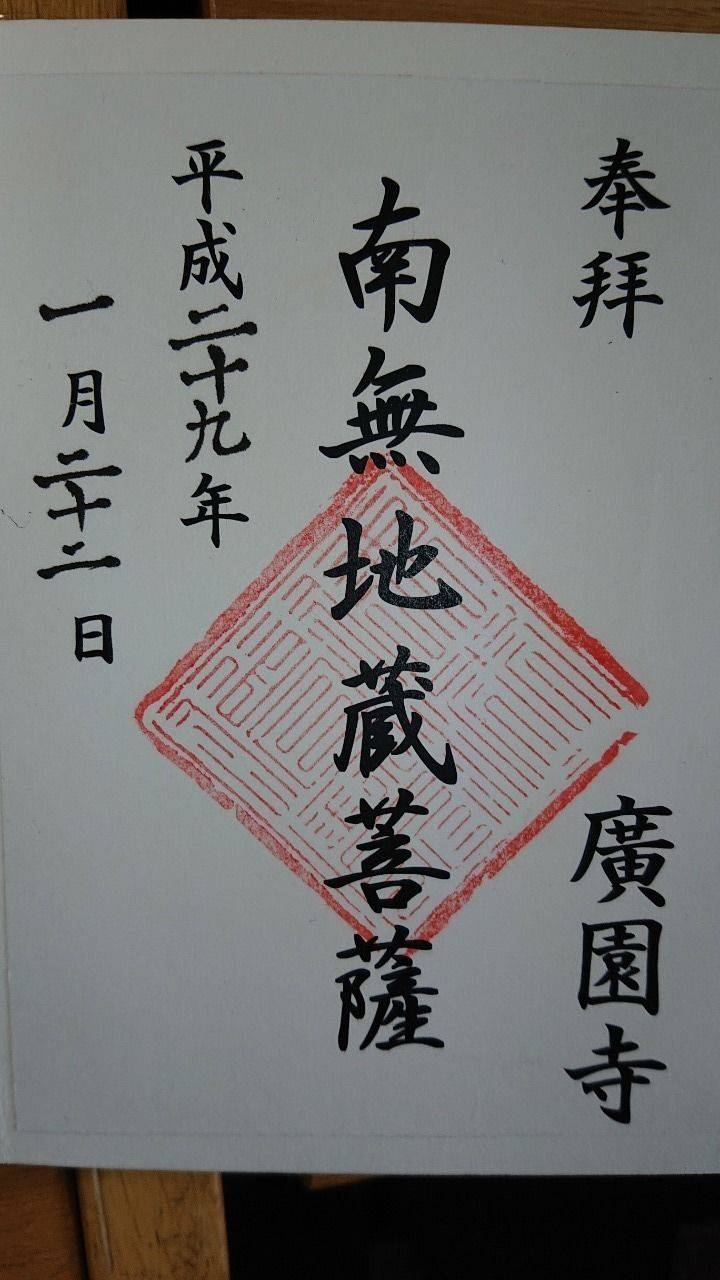 奉拜 廣園寺
南無地蔵菩薩
平成二十九年
一月二十二日